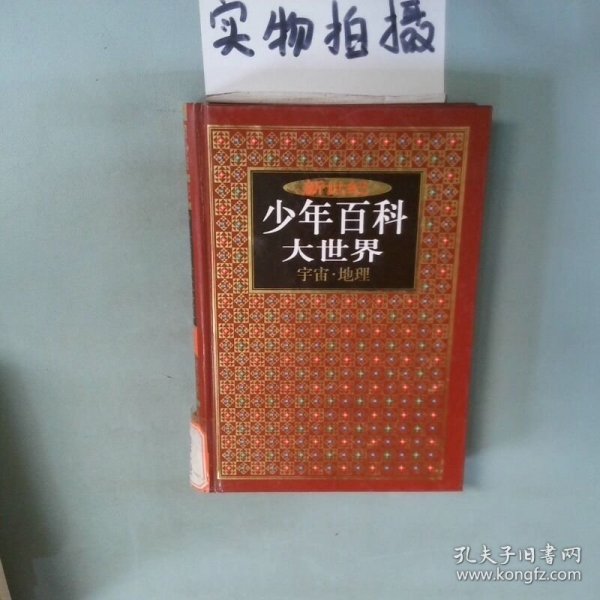 实物拍摄
新世纪
少年百科
大世界
宇宙·地理
孔夫子旧书网
www.kongfz.com